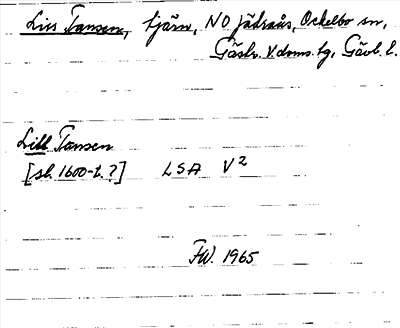 Liss Tansen, tjärn, NO Jädraås, Ockelbo sn,
Gästr. V. doms. tg, Gävl. l.
Lill Tansen
[sl. 1600-t. ?] LSA V²
FW. 1965